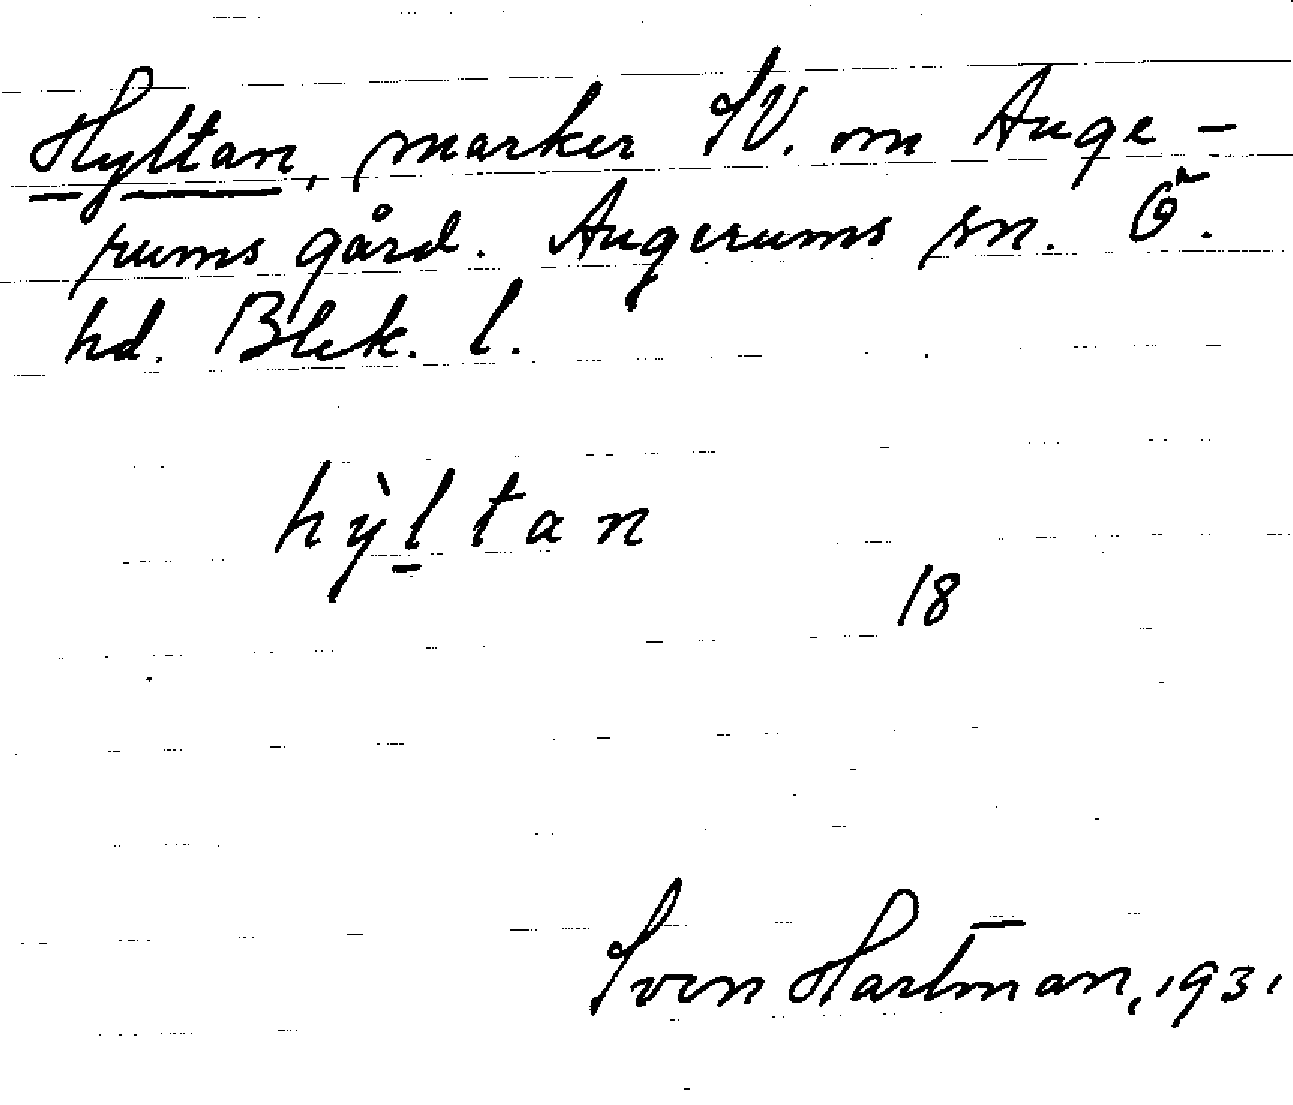 Hyltan, marker SV. om Auge-
rums gård. Augerums sn. Ö.
hd. Blek. l.
hỳl̲tan
18
Sven Hartman, 1931